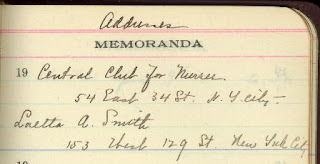 Addresses
MEMORANDA
19 Central Club for Nurses
54 East 34 St. N.Y. City-
Loetta A. Smith
153 West 129 St New York City